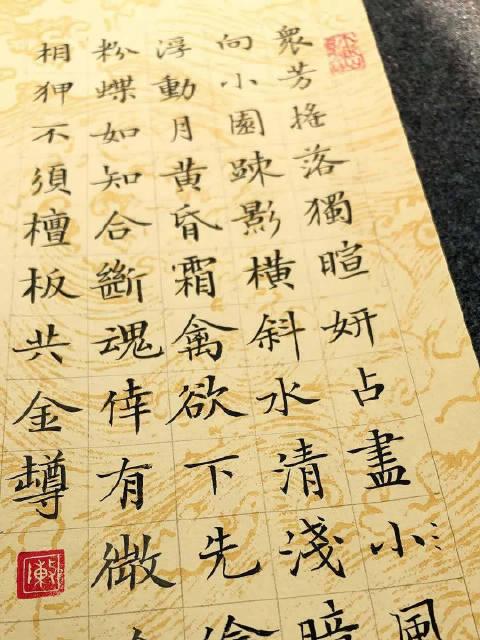 衆芳搖落獨暄妍占盡小風
向小園踈影橫斜水清淺暗
浮動月黄昏霜禽欲下先偷
粉蝶如知合斷魂倖有微
相狎不須檀板共金罇